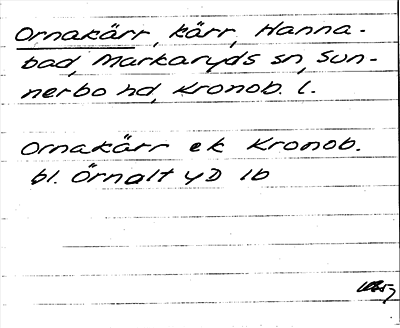 Ornakärr, kärr, Hanna-
bad, Markaryds sn, Sun-
nerbo hd, Kronob. l.
Ornakärr ek Kronob.
bl. Örnalt YD 1b